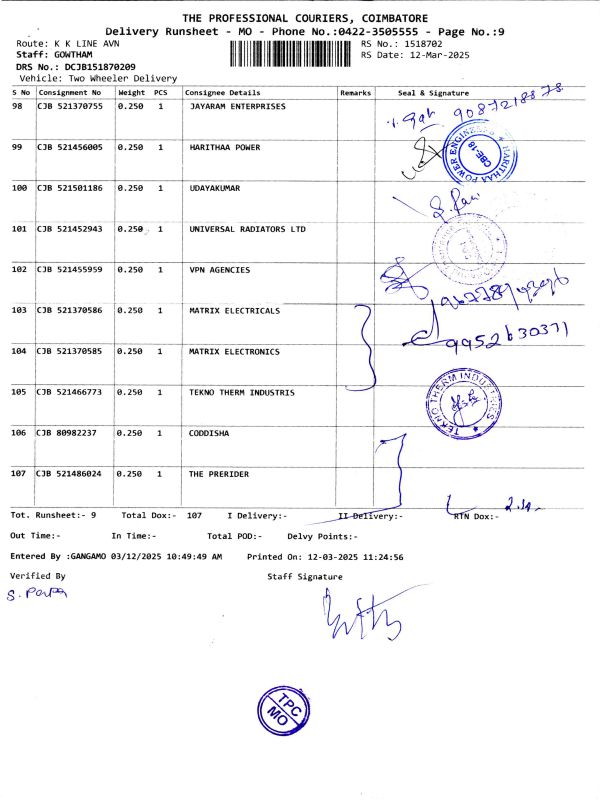 THE PROFESSIONAL COURIERS, COIMBATORE
Delivery Runsheet - MO - Phone No.:0422-3505555 - Page No.:9
Route: K K LINE AVN
RS No.: 1518702
Staff: GOWTHAM
RS Date: 12-Mar-2025
DRS No.: DCJB151870209
Vehicle: Two Wheeler Delivery
S No Consignment No Weight PCS Consignee Details Remarks Seal & Signature
98 CJB 521370755 0.250 1 JAYARAM ENTERPRISES 9087218878
99 CJB 521456005 0.250 1 HARITHAA POWER
HARITHAA POWER ENGINEERS CBE-18
100 CJB 521501186 0.250 1 UDAYAKUMAR
101 CJB 521452943 0.250 1 UNIVERSAL RADIATORS LTD
102 CJB 521455959 0.250 1 VPN AGENCIES
103 CJB 521370586 0.250 1 MATRIX ELECTRICALS
9952630371
104 CJB 521370585 0.250 1 MATRIX ELECTRONICS
105 CJB 521466773 0.250 1 TEKNO THERM INDUSTRIS
TEKNO THERM INDUSTRIES
106 CJB 80982237 0.250 1 CODDISHA
107 CJB 521486024 0.250 1 THE PRERIDER
Tot. Runsheet:- 9 Total Dox:- 107 I Delivery:- II Delivery:- RTN Dox:-
Out Time:- In Time:- Total POD:- Delvy Points:-
Entered By :GANGAMO 03/12/2025 10:49:49 AM Printed On: 12-03-2025 11:24:56
Verified By Staff Signature
TPC
MO